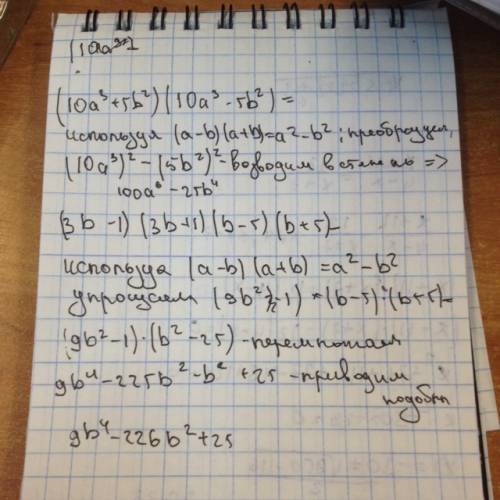 (10a³
(10a³+5b²)(10a³-5b²)=
используя (a-b)(a+b)=a²-b²; преобразуем,
(10a³)²-(5b²)²-возводим в степень =>
100a⁶-25b⁴
(3b-1)(3b+1)(b-5)(b+5)-
используя (a-b)(a+b)=a²-b²
упрощаем (9b²-1)*(b-5)·(b+5)-
(9b²-1)·(b²-25)-перемножаем
9b⁴-225b²-b²+25-приводим
подобн
9b⁴-226b²+25